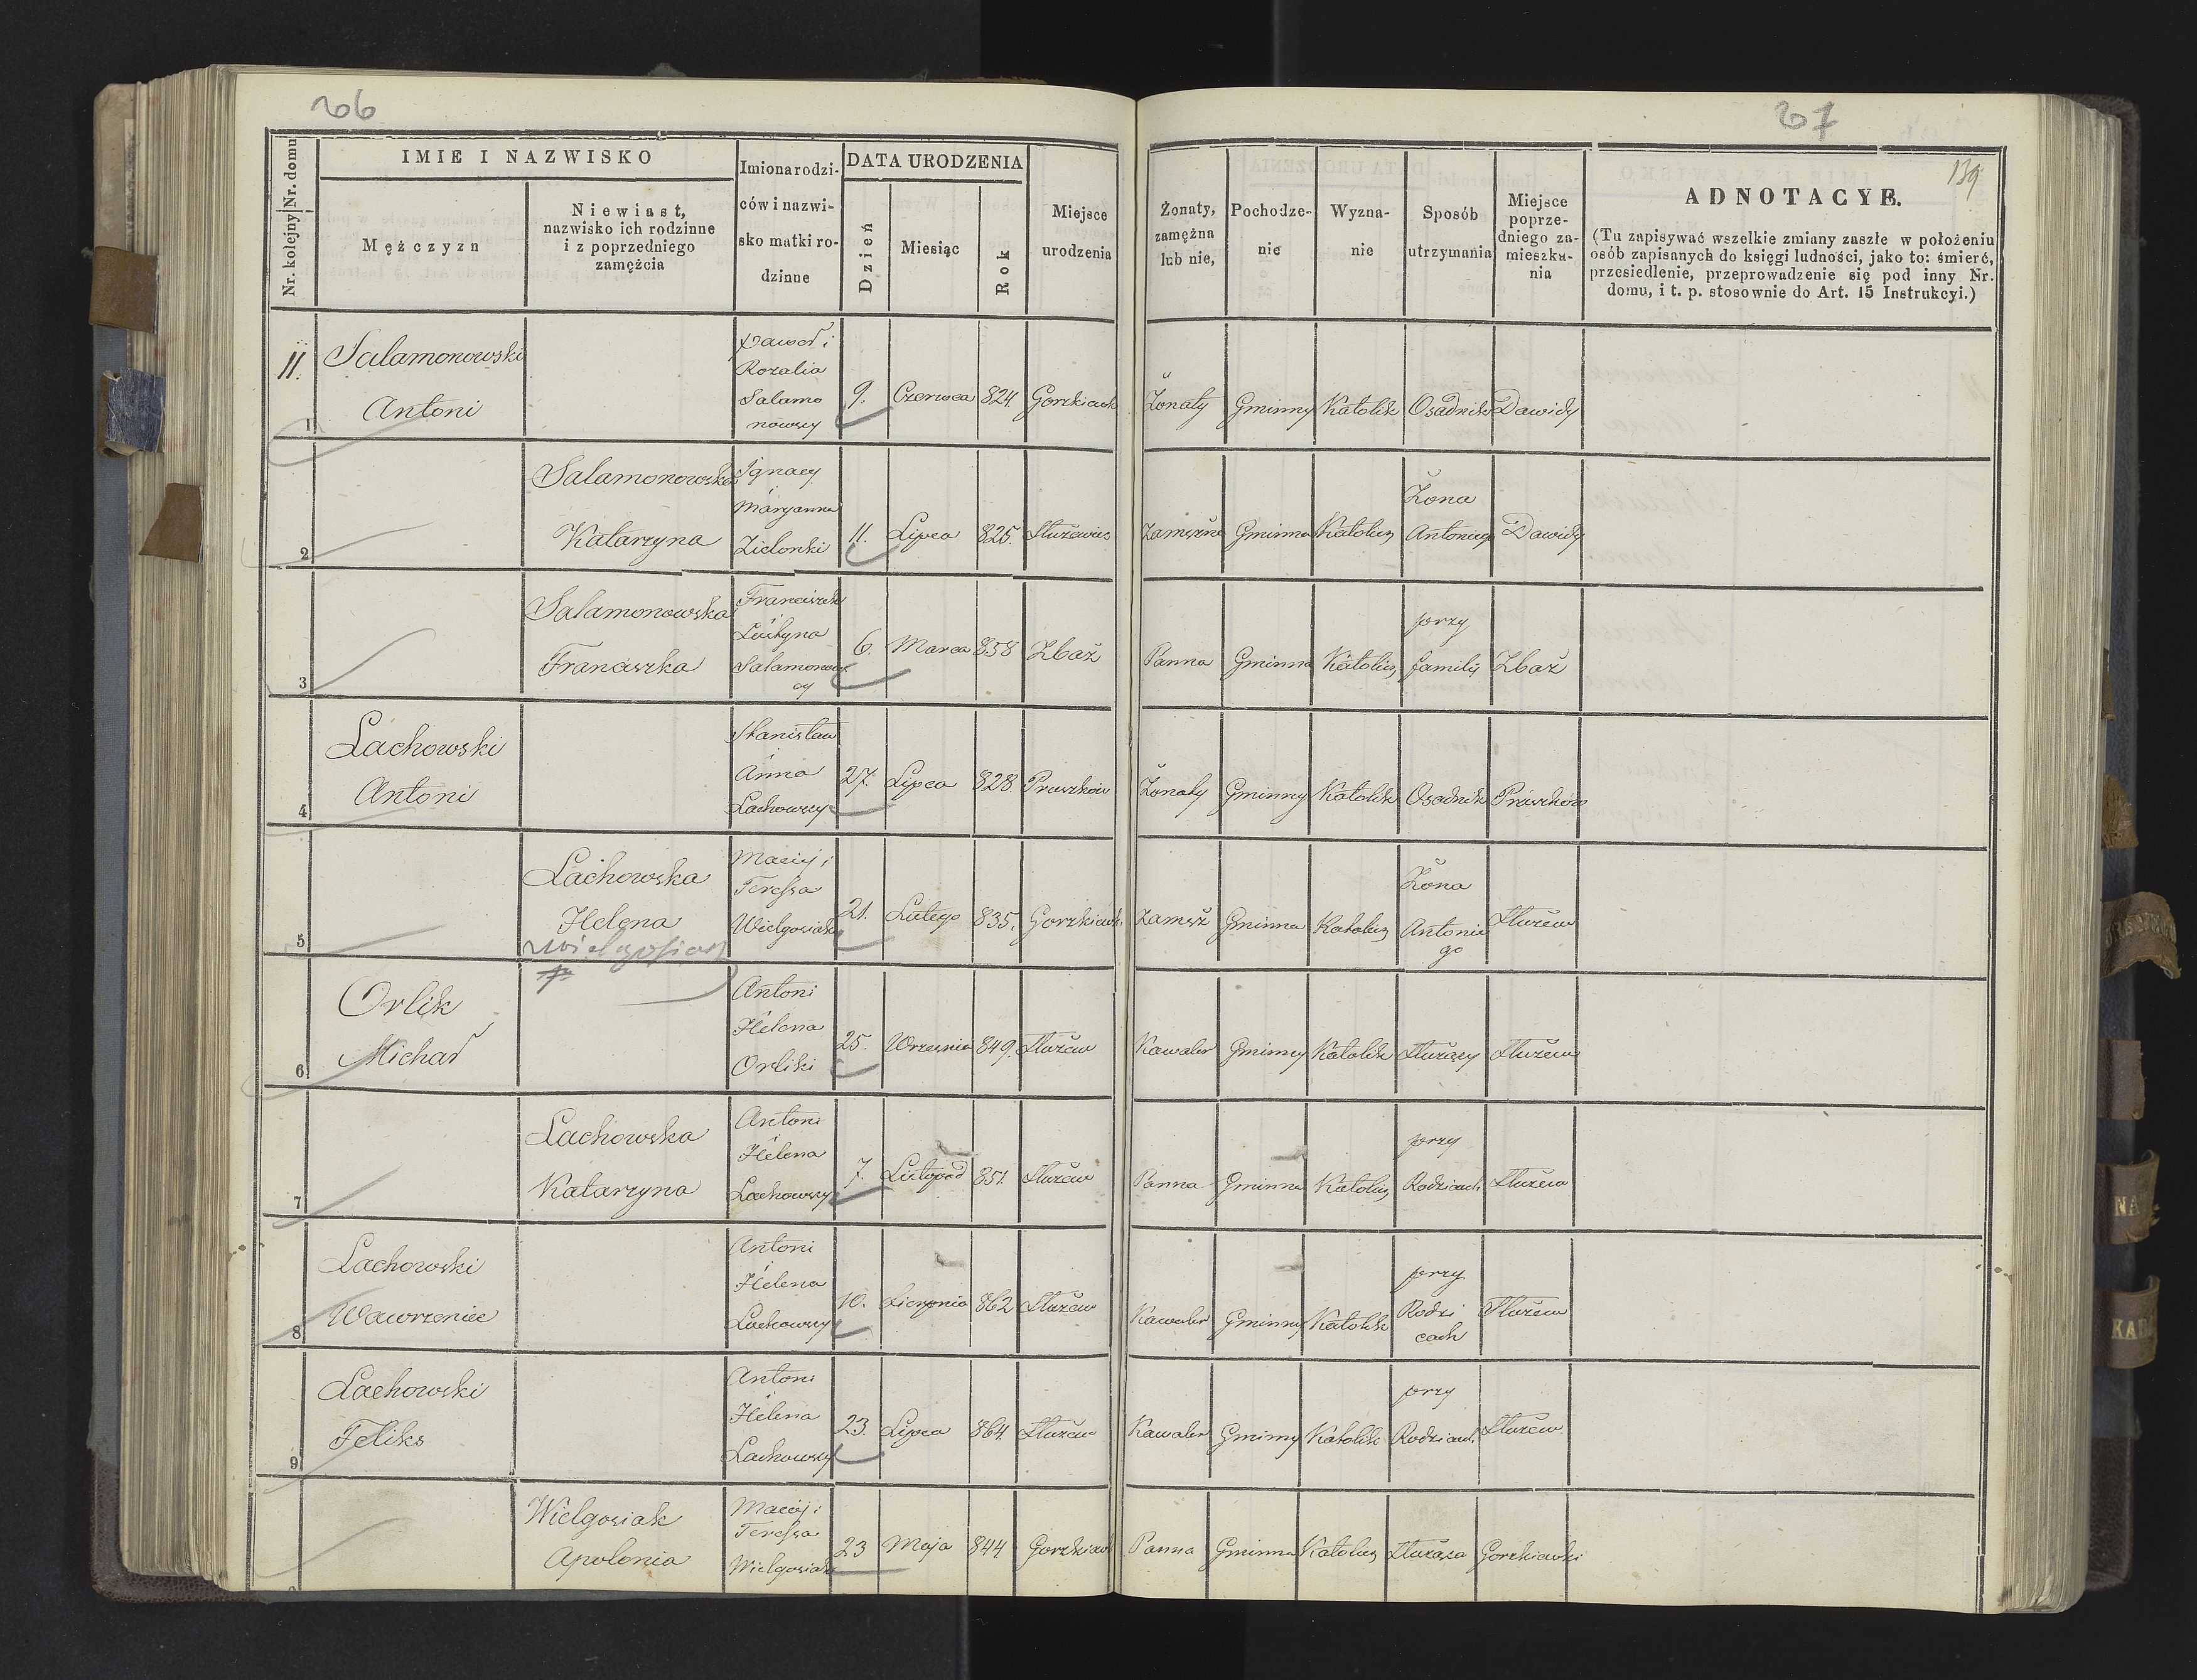 206
207
139
Nr. kolejny Nr. domu
IMIE I NAZWISKO
Mężczyzn
Niewiast,
nazwisko ich rodzinne
i z poprzedniego
zamęźcia
Imiona rodzi-
ców i nazwi-
sko matki ro-
dzinne
DATA URODZENIA
Dzień
Miesiąc
Rok
Miejsce
urodzenia
Żonaty,
zamężna
lub nie,
Pochodze-
nie
Wyzna-
nie
Sposób
utrzymania
Miejsce
poprze-
dniego za-
mieszka-
nia
ADNOTACYE.
(Tu zapisywać wszelkie zmiany zaszłe w położeniu
osób zapisanych do księgi ludności, jako to: śmierć,
przesiedlenie, przeprowadzenie się pod inny Nr.
domu, i t. p. stosownie do Art. 15 Instrukcyi.)
11.
1
Salamonowski
Antoni
Paweł i
Rozalia
Salamo
nowscy
9. Czerwca 824 Gorzkiewk
Żonaty Gminny Katolik Osadnik Dawidy
2
Salamonowska
Katarzyna
Ignacy
i
Maryanna
Zielonki
11. Lipca 825.
Zamężna Gminna Katolicz
Żona
Antoniego
Dawidy
3
Salamonowska
Franciszka
Franciszek
i
Salamonows
cy
6. Marca 858 Zbaż
Panna Gminna Katolicz
przy
familij
Zbaż
4
Lachowski
Antoni
Stanisław
i
Anna
Lachowscy
27. Lipca 828. Pruszków
Żonaty Gminny Katolik Osadnik Pruszków
5
Lachowska
Helena
Wielgosiak
Maciej i
Teressa
Wielgosiak
21. Lutego 835. Gorzkiewk
Zamęż Gminna Katolicz
Żona
Antonie
go
Służew
6
Orlik
Michał
Antoni
i
Helena
Orliki
25. Wrzesnia 849. Służew
Kawaler Gminny Katolik Służący Służew
7
Lachowska
Katarzyna
Antoni
i
Helena
Lachowscy
7. Listopad 851. Służew
Panna Gminna Katolicz
przy
Rodzicach
Służew
8
Lachowski
Wawrzeniec
Antoni
i
Helena
Lachowscy
10. Sierpnia 862 Służew
Kawaler Gminny Katolik
przy
Rodzi
cach
Służew
9
Lachowski
Feliks
Antoni
i
Helena
Lachowscy
23. Lipca 864. Służew
Kawaler Gminny Katolik
przy
Rodzicach
Służew
Wielgosiak
Apolonia
Maciej i
Teressa
Wielgosiak
23 Maja 844 Gorzkiewk
Panna Gminna Katolicz Służąca Gorzkiewki